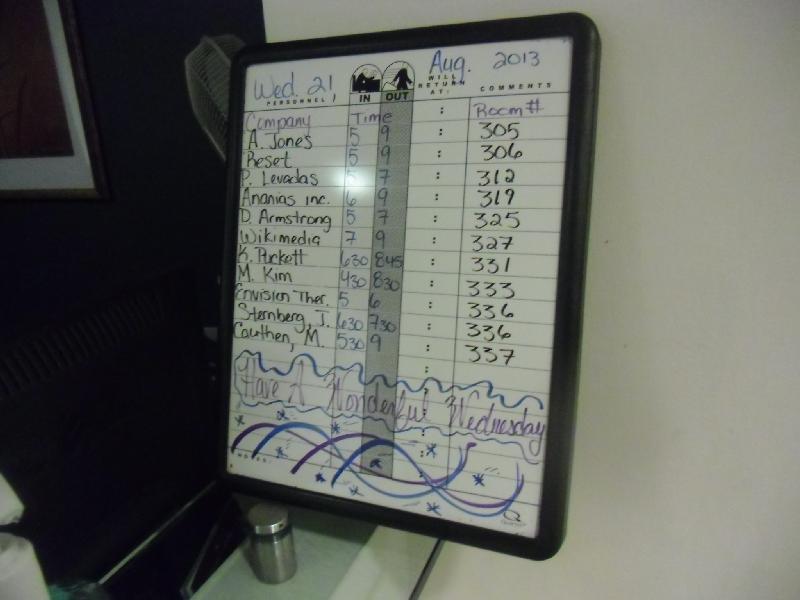 Wed. 21, Aug. 2013
PERSONNEL IN OUT WILL RETURN AT: COMMENTS
Company Time : Room #
A. Jones 5 9 : 305
Reset 5 9 : 306
P. Levadas 5 7 : 312
Ananias inc. 6 9 : 319
D. Armstrong 5 7 : 325
Wikimedia 7 9 : 327
K. Puckett 630 845 : 331
M. Kim 430 830 : 333
Envision Ther. 5 6 : 336
Sternberg, J. 630 730 : 336
Cauthen, M. 530 9 : 337
Have A Wonderful Wednesday
NOTES: